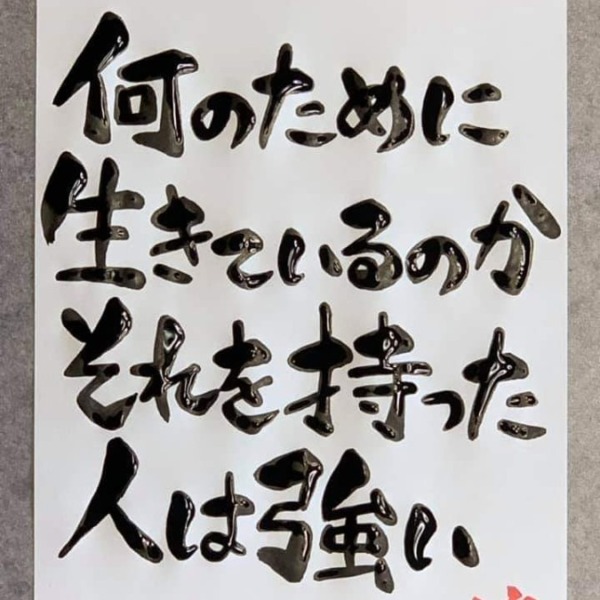 何のために
生きているのか
それを持った
人は強い